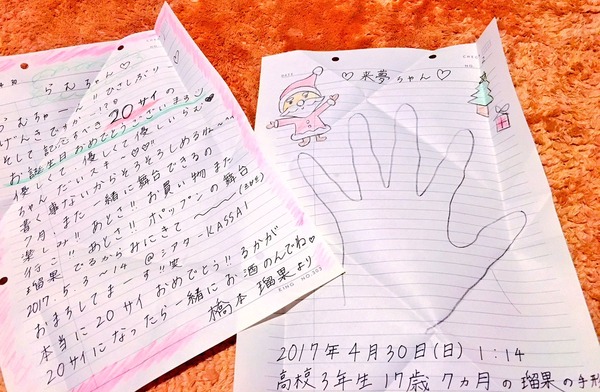 らむちゃん♡
らむちゃーん!! ひさしぶり
げんきですか!?
そして記念すべき20サイの
お誕生日おめでとうございまる
優しくて、優しくて、優しいらむ
ちゃんだいスキ〜♡♡
書く事ないからそろそろしめるね〜
7月、また一緒に舞台できるの
楽しみ!! あとさ!! お買い物また
行こ!! あとさ!! ポップンの舞台
瑠果でるからみにきて
2017.5.3〜14 @シアターKASSAI
おまちしてまーす!!笑
本当に20サイおめでとう!! るかが
20サイになったら一緒にお酒のんでね♡
橋本瑠果より
DATE
♡来夢ちゃん♡
NO.
KING NO.303
2017年4月30日(日) 1:14
高校3年生17歳7ヵ月の瑠果の手形